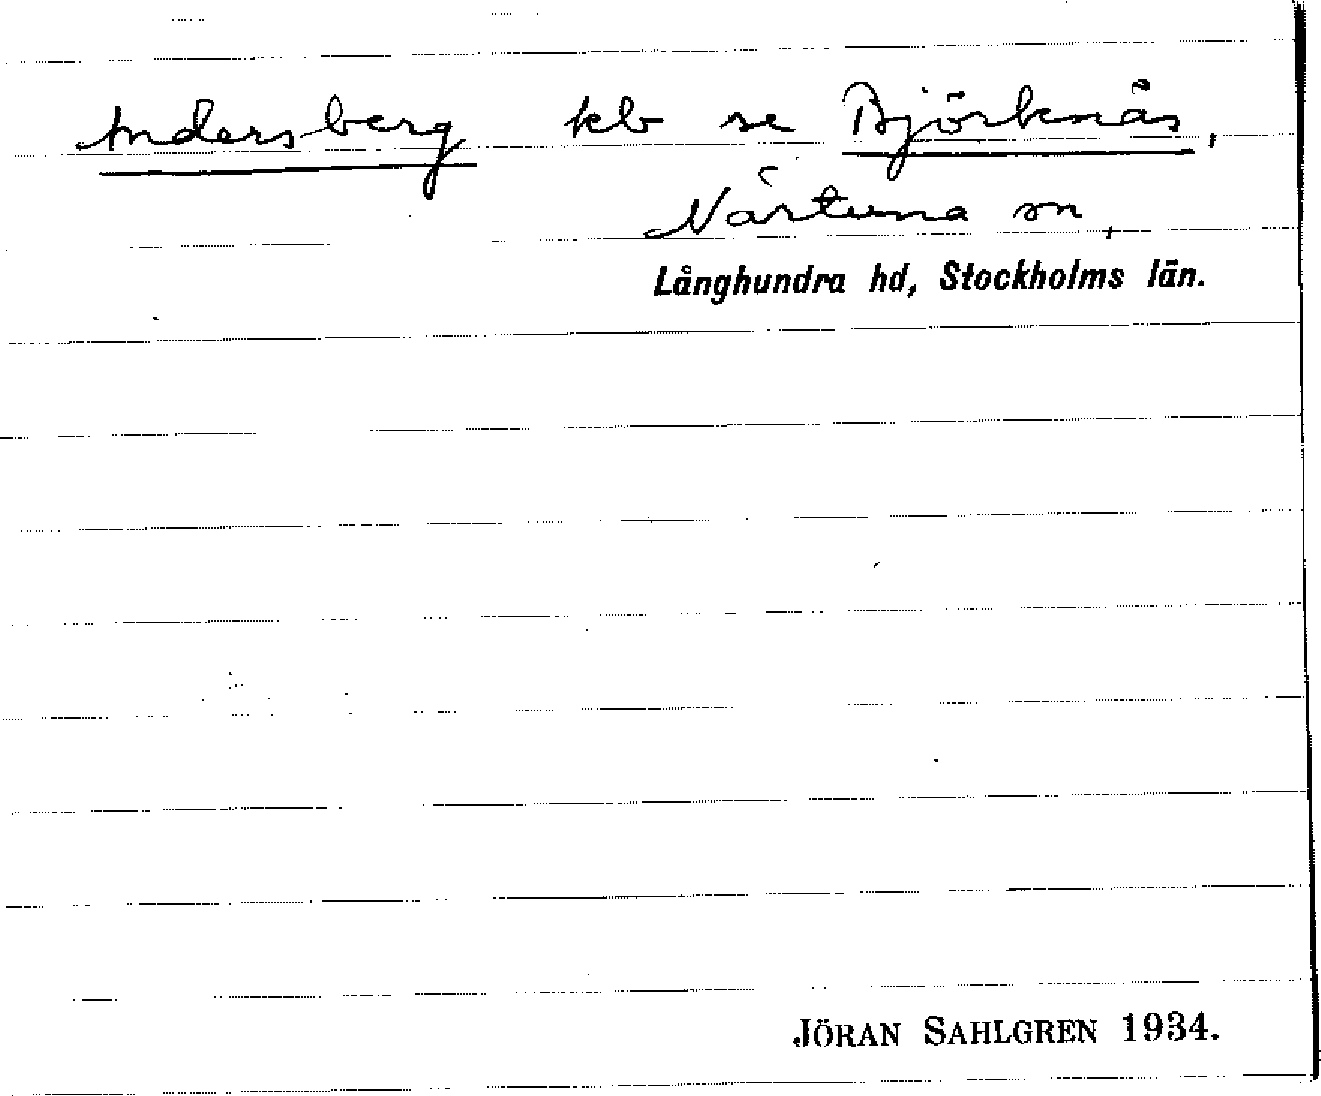 Andersberg kb se Björknäs,
Närtuna sn,
Långhundra hd, Stockholms län.
JÖRAN SAHLGREN 1934.